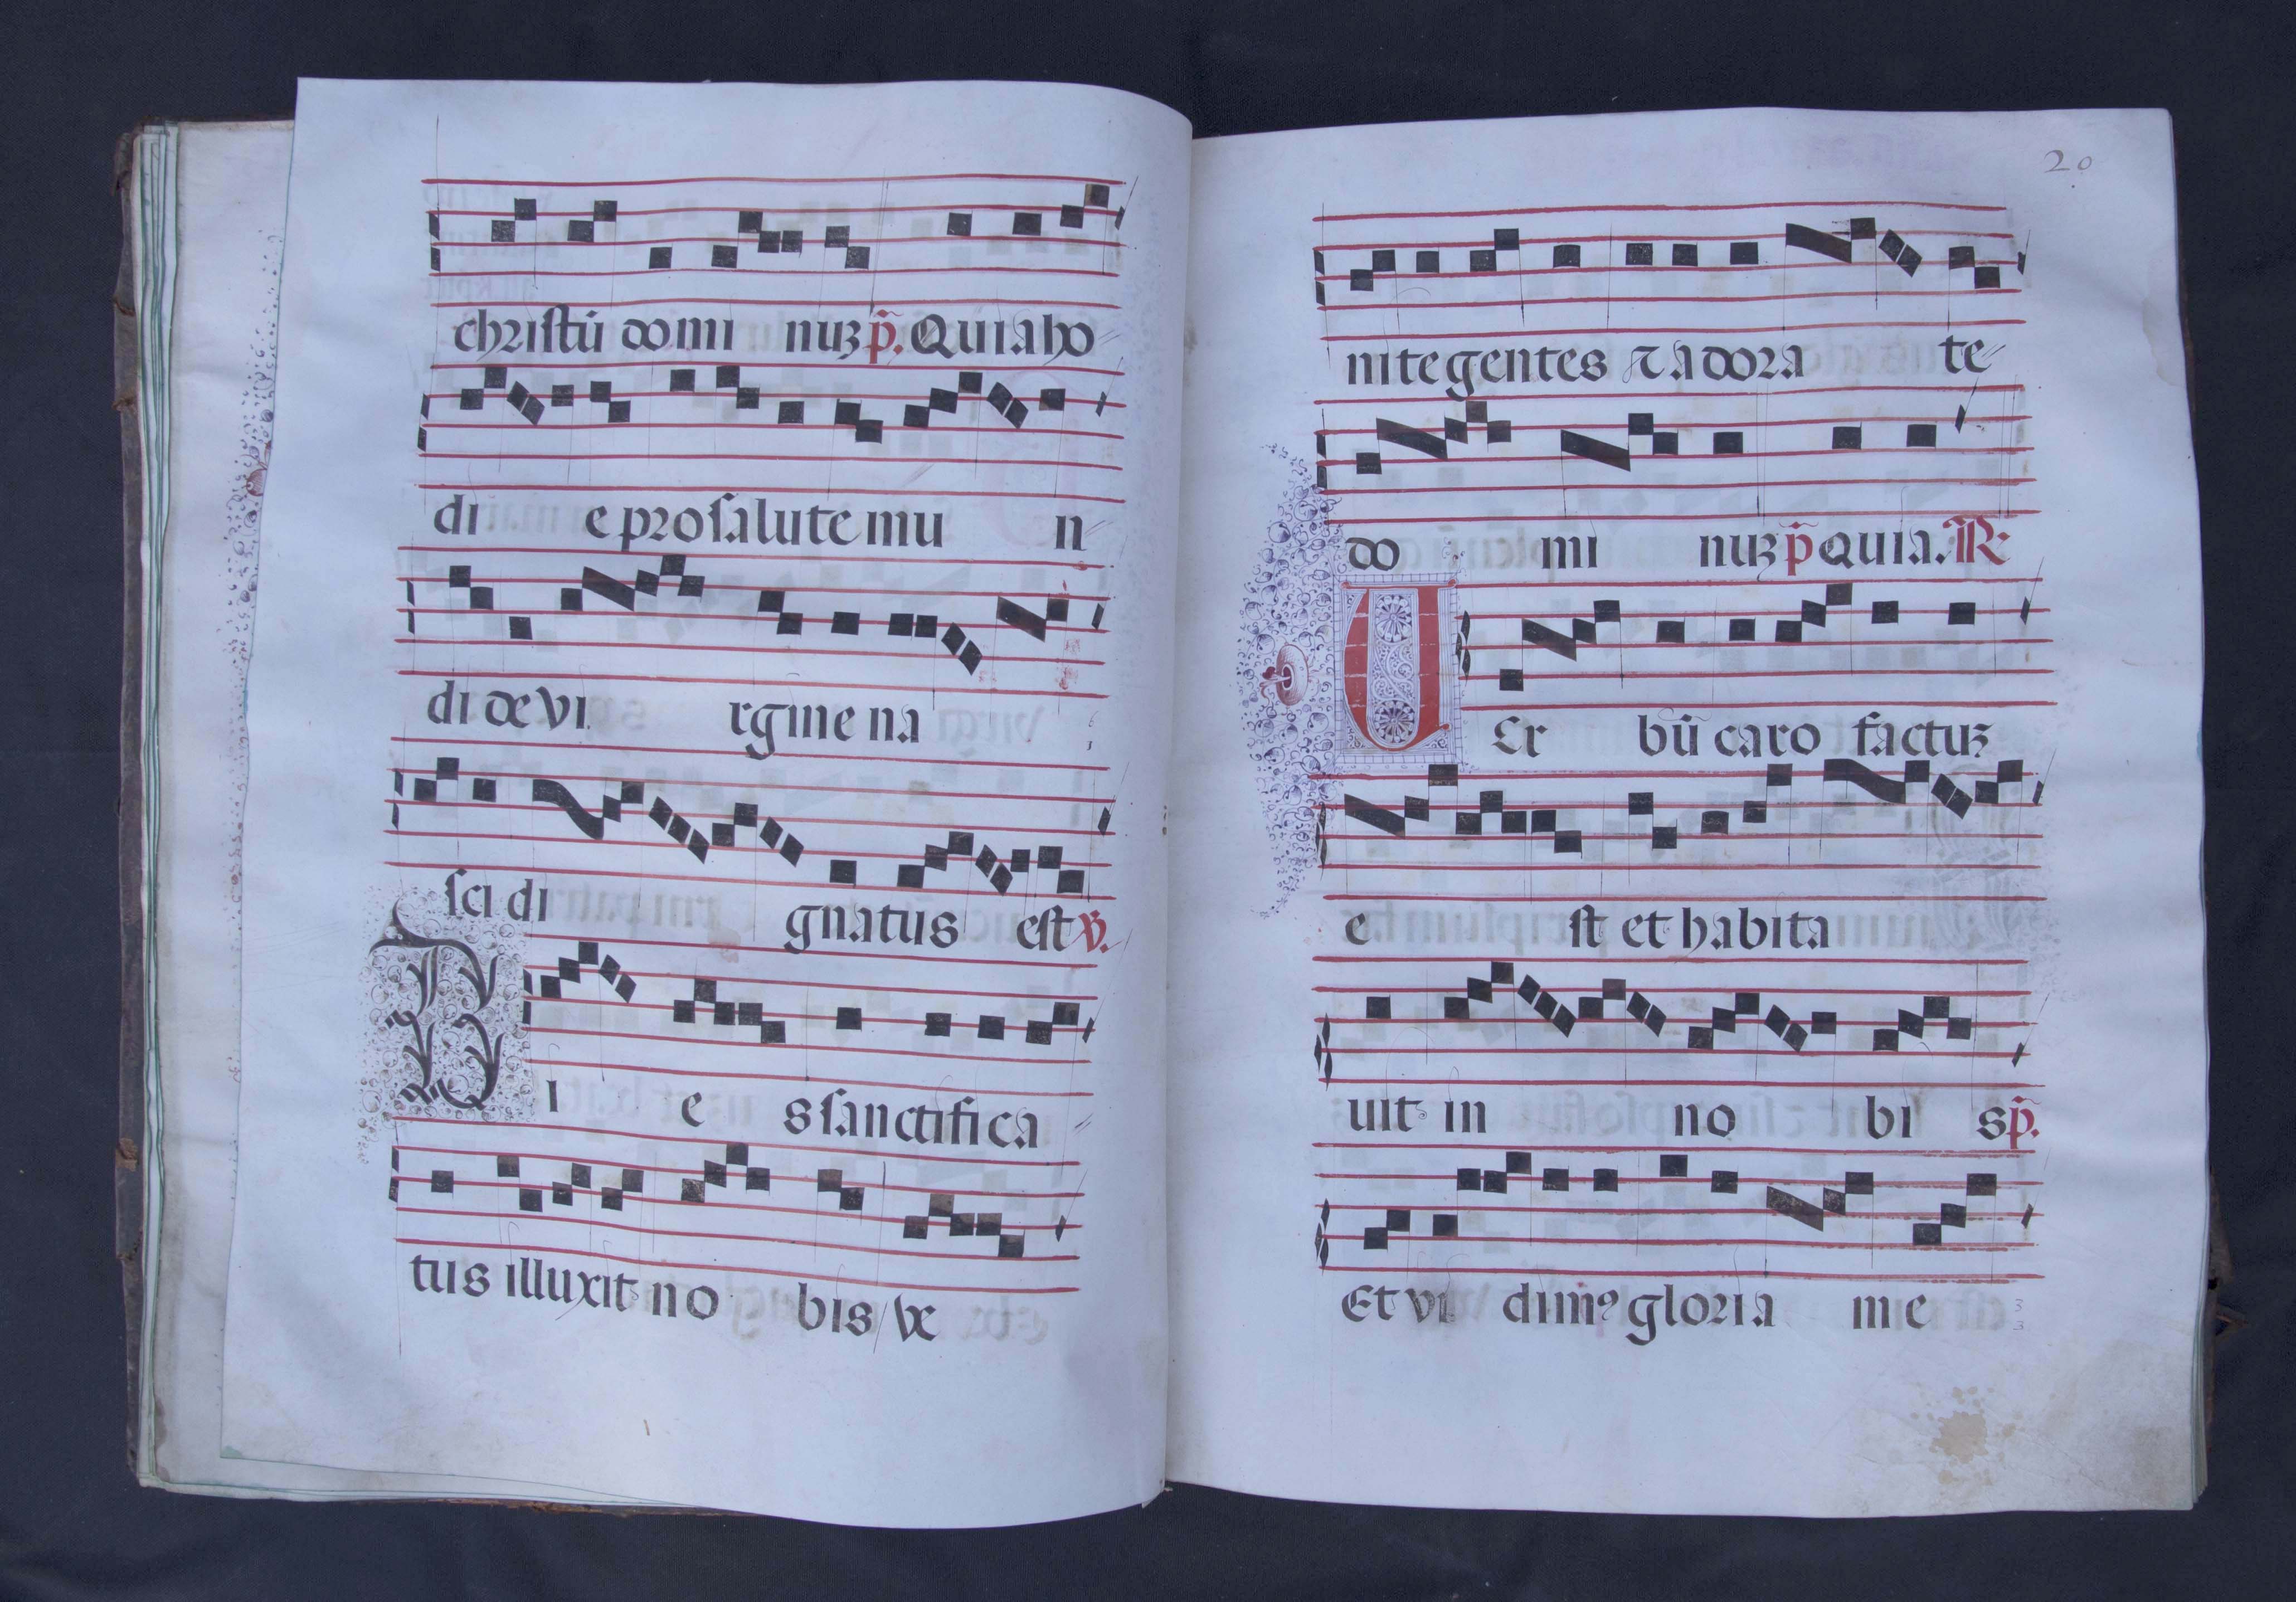 christū domi nuꝫ p̄. Quia ho
di e pro salute mu n
di de vi rgine na
sci di gnatus est ℣.
DI e s sanctifica
tus illuxit no bis / ve
20
nite gentes ⁊ adora te
do mi nuꝫ p̄ Quia. ℟
VEr bū caro factuꝫ
e st et habita
uit in no bi s p̄.
Et vi dimꝰ gloria m e